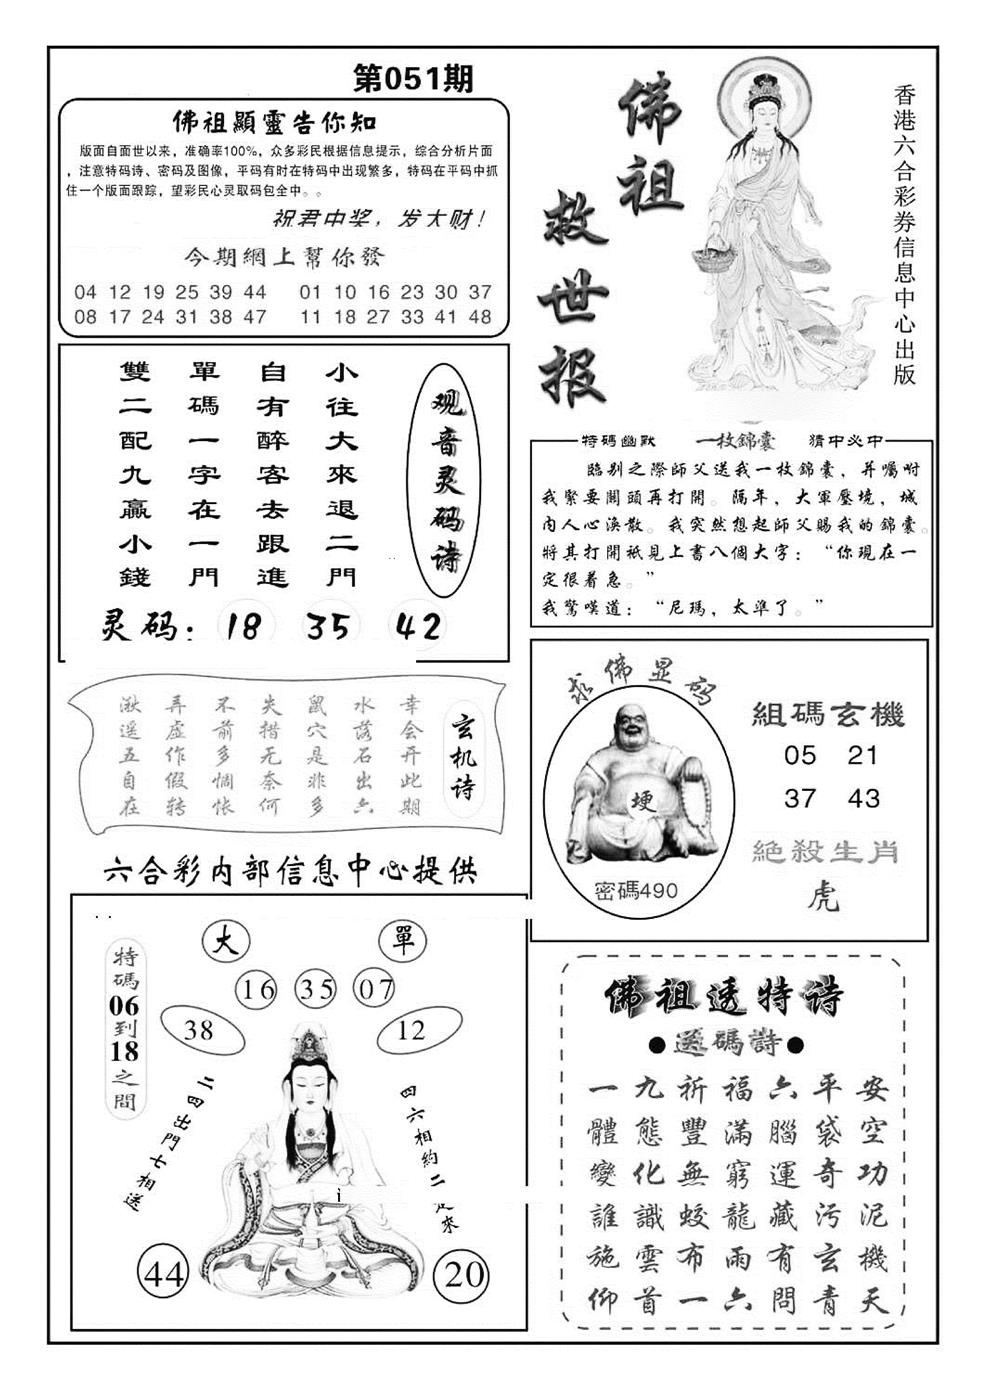 第051期
佛祖顯靈告你知
版面自面世以来，准确率100%，众多彩民根据信息提示，综合分析片面
，注意特码诗、密码及图像，平码有时在特码中出现繁多，特码在平码中抓
住一个版面跟踪，望彩民心灵取码包全中。。
祝君中奖，发大财！
今期網上幫你發
04 12 19 25 39 44 01 10 16 23 30 37
08 17 24 31 38 47 11 18 27 33 41 48
佛祖
救世报
香港六合彩券信息中心出版
观音灵码诗
小往大來退二門
自有醉客去跟進
單碼一字在一門
雙二配九贏小錢
灵码：18 35 42
特碼幽默 一枚錦囊 猜中必中
臨别之際師父送我一枚錦囊，并囑咐
我緊要關頭再打開。隔年，大軍壓境，城
内人心渙散。我突然想起師父賜我的錦囊。
將其打開衹見上書八個大字：“你現在一
定很着急。”
我驚嘆道：“尼瑪，太準了。”
玄机诗
幸会开此期
水落石出六
鼠穴是非多
失措无奈何
不前多惆怅
弄虚作假转
湫遥五自在
六合彩内部信息中心提供
求佛显码
埂
密碼490
組碼玄機
05 21
37 43
絕殺生肖
虎
大 單
16 35 07
38 12
特碼06到18之間
二四出門七相送
四六相約二 來
i
44 20
佛祖透特诗
●送碼詩●
安空功泥機天
平袋奇污玄青
六腦運藏有問
福滿窮龍雨六
祈豐無蛟布一
九態化識雲首
一體變誰施仰